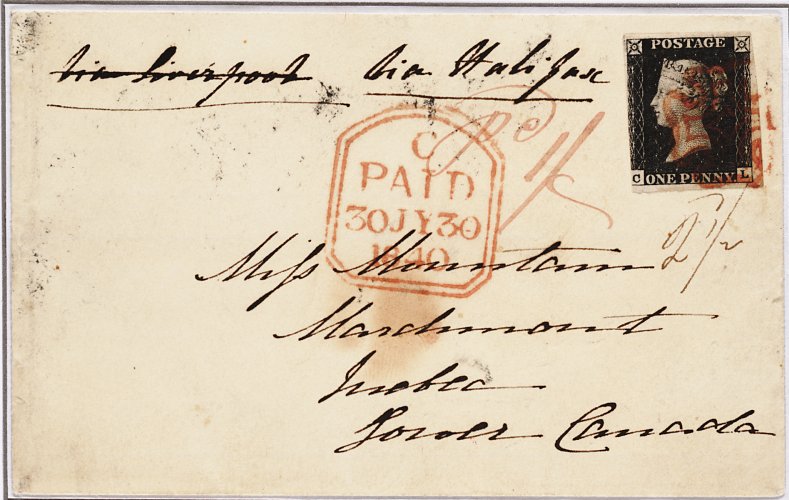 via Liverpool via Halifax
POSTAGE
ONE PENNY
C L
C
PAID
30JY30
1840
Pd 1/
2 1/2
Miss Mountain
Marchmont
Quebec
Lower Canada